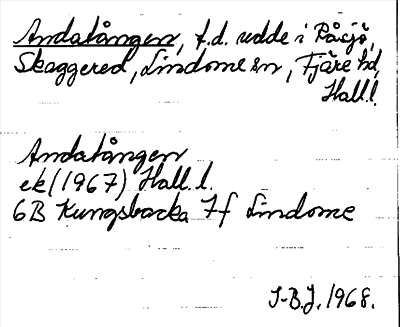 Andatången, f.d. udde i Råsjö,
Skäggered, Lindome sn, Fjäre hd,
Hall.l.
Andatången
ek (1967) Hall.l.
6B Kungsbacka 7f Lindome
I-B.J. 1968.